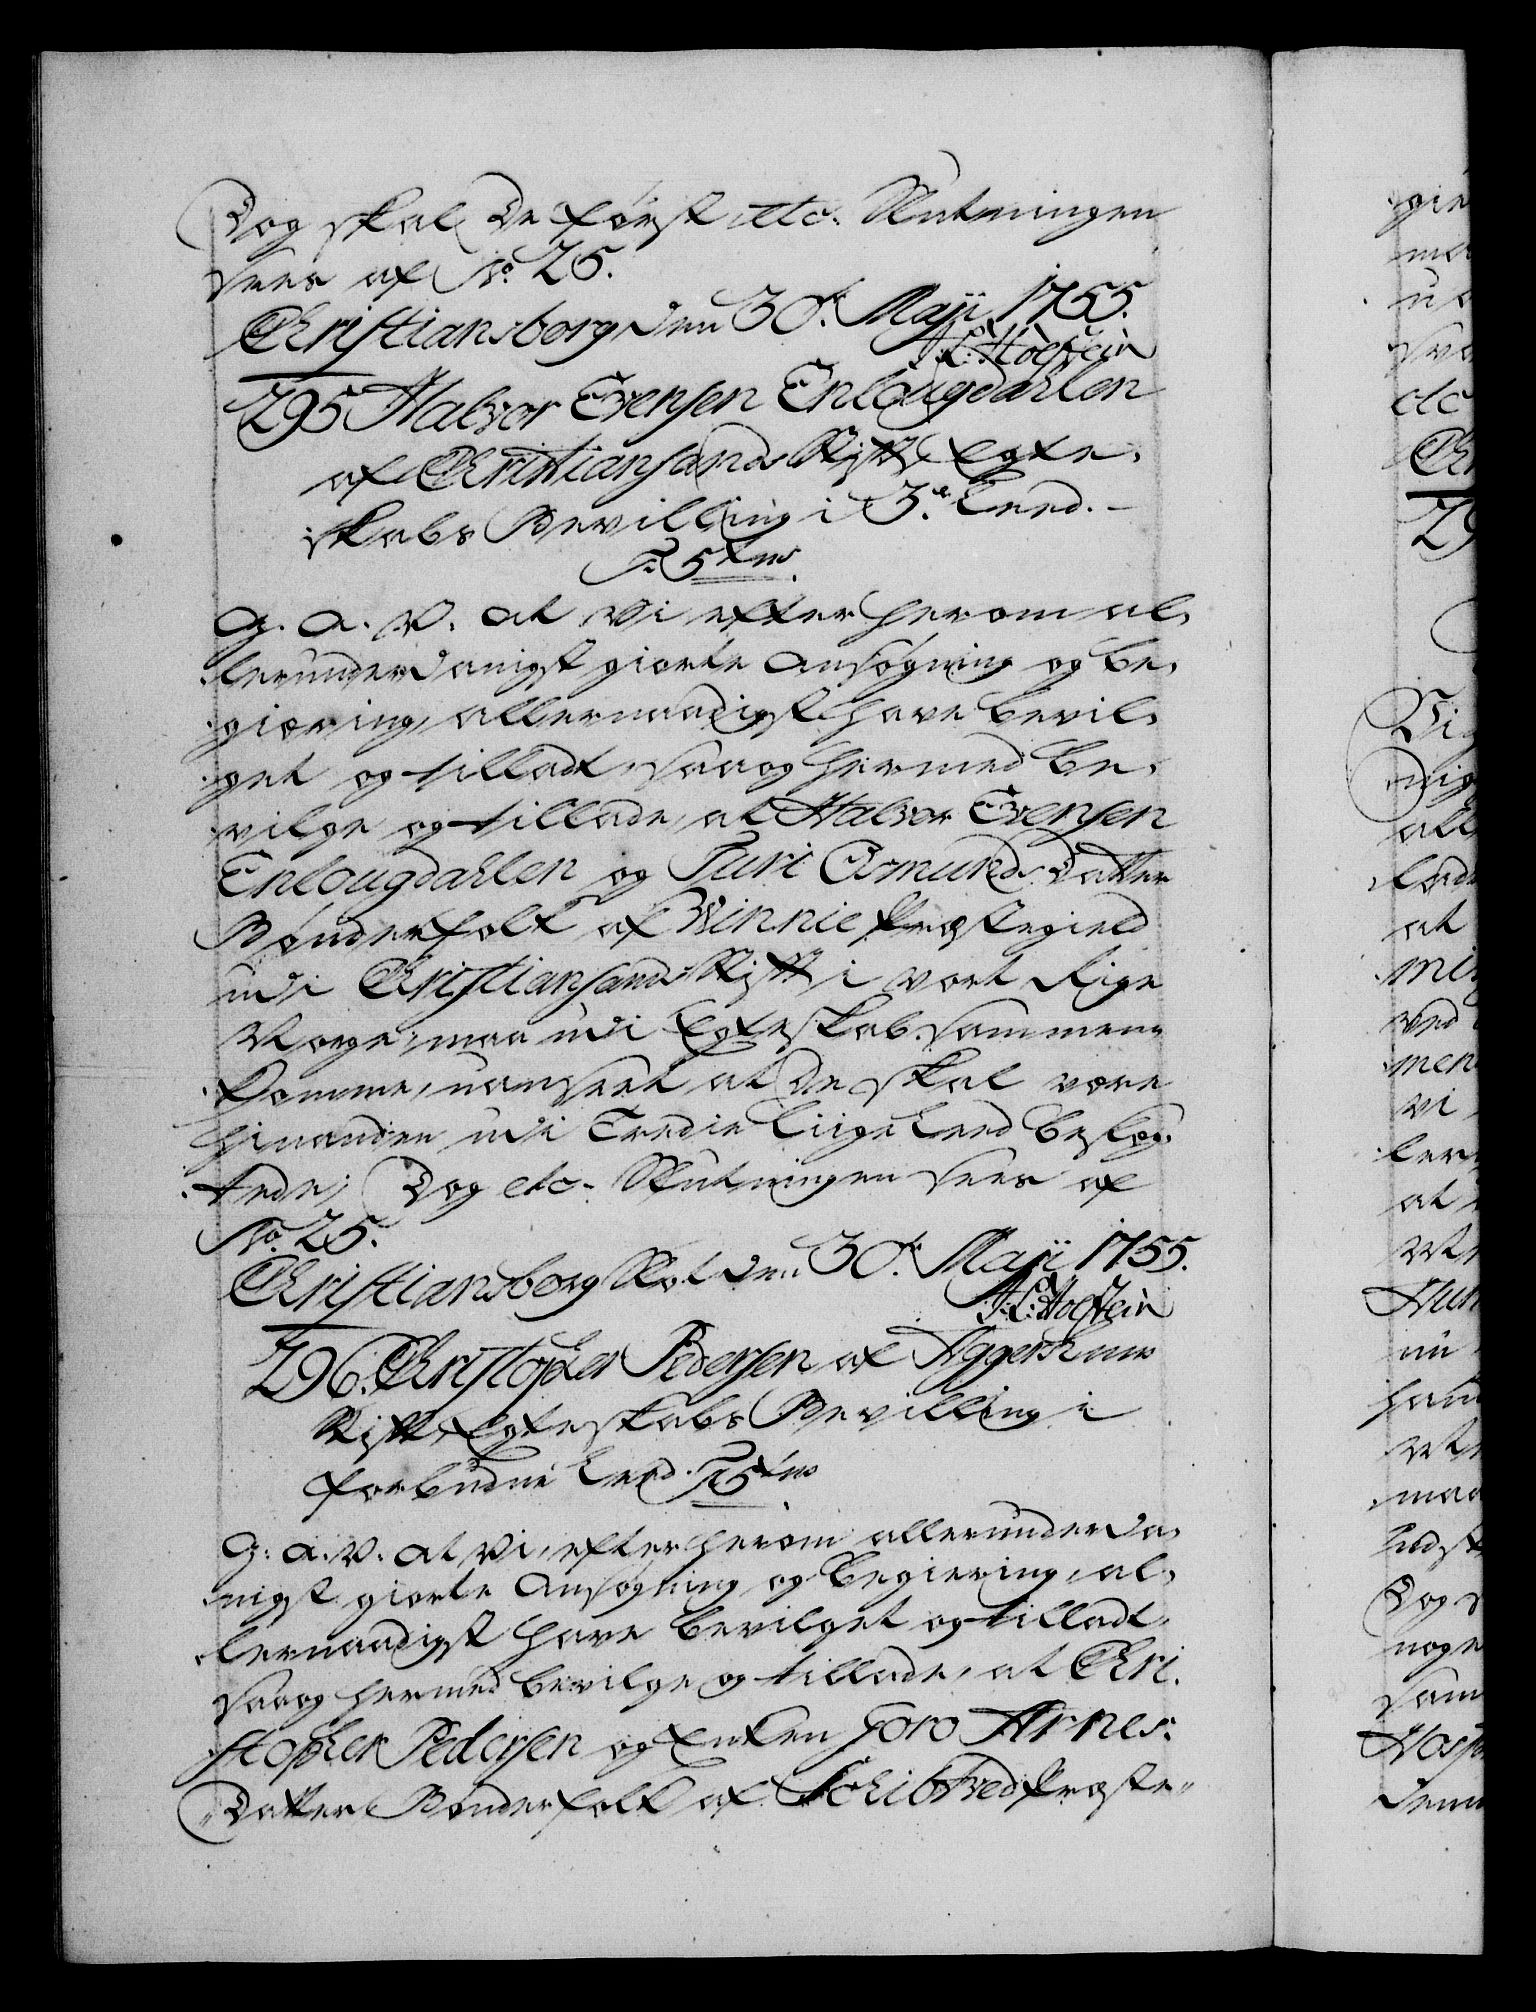 Dog skal de først etc. Slutningen
sees af No. 25.
Christiansborg den 30te Maji 1755.
J: L: Holstein
295 Halvor Evensen Enlougdahlen
af Christiansands Stift, Egte,
skabs Bevilling i 3die Leed. -
T. 5
G. A. V. at Vi efter herom al,
lerunderdanigst giorte Ansøgning og be,
giæring, allernaadigst have bevil,
get og tilladt, saa og hermed be,
vilge og tillade, at Halvor Evensen
Enlougdahlen og Turi Osmunds Datter
Bønderfolk af Vinnie Præstegield
udi Christiansands Stift i vort Rige
Norge, maa udi Egteskab sammen
komme, uanseet at de skal være
hinanden udi Tredie Liige Leed beslæg,
tede; Dog etc. Slutningen sees af
No. 25.
Christiansborg Slot den 30te Maji 1755.
J: L: Holstein
296. Christopher Pedersen af Aggershuus
Stift, Egteskabs Bevilling i
forbudne Leed. T. 5
G: A. V. at Vi, efter herom allerunderda,
nigst giorte Ansøgning og Begiering, al,
lernaadigst have bevilget og tilladt,
saa og hermed bevilge og tillade, at Chri,
stopher Pedersen og Enken Goro Arnes,
Datter Bønderfolk af Schibtved Præste,,